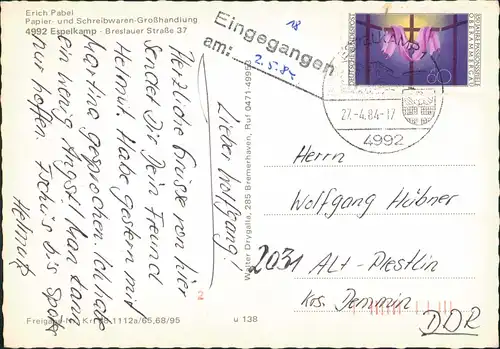 Erich Pabel
Papier- und Schreibwaren-Großhandlung
4992 Espelkamp - Breslauer Straße 37
Lieber Wolfgang!
Herzliche Grüsse von hier
sendet Dir Dein Freund
Helmut. Habe gestern mit
Martina gesprochen. Ich habe
ein wenig Angst! Man kann
nur hoffen. Tschüs bis später
Helmut
Freigabe-Nr. Krf 1112a/65,68/95
u 138
2
Walter Drygalla, 285 Bremerhaven, Ruf 0471-49953
18
Eingegangen
am: 2.5.84
DEUTSCHE BUNDESPOST
350 JAHRE PASSIONSSPIELE
OBERAMMERGAU
60
ESPELKAMP
27.-4.84-17
4992
Herrn
Wolfgang Hübner
2031 Alt-Plestlin
Krs. Demmin
DDR